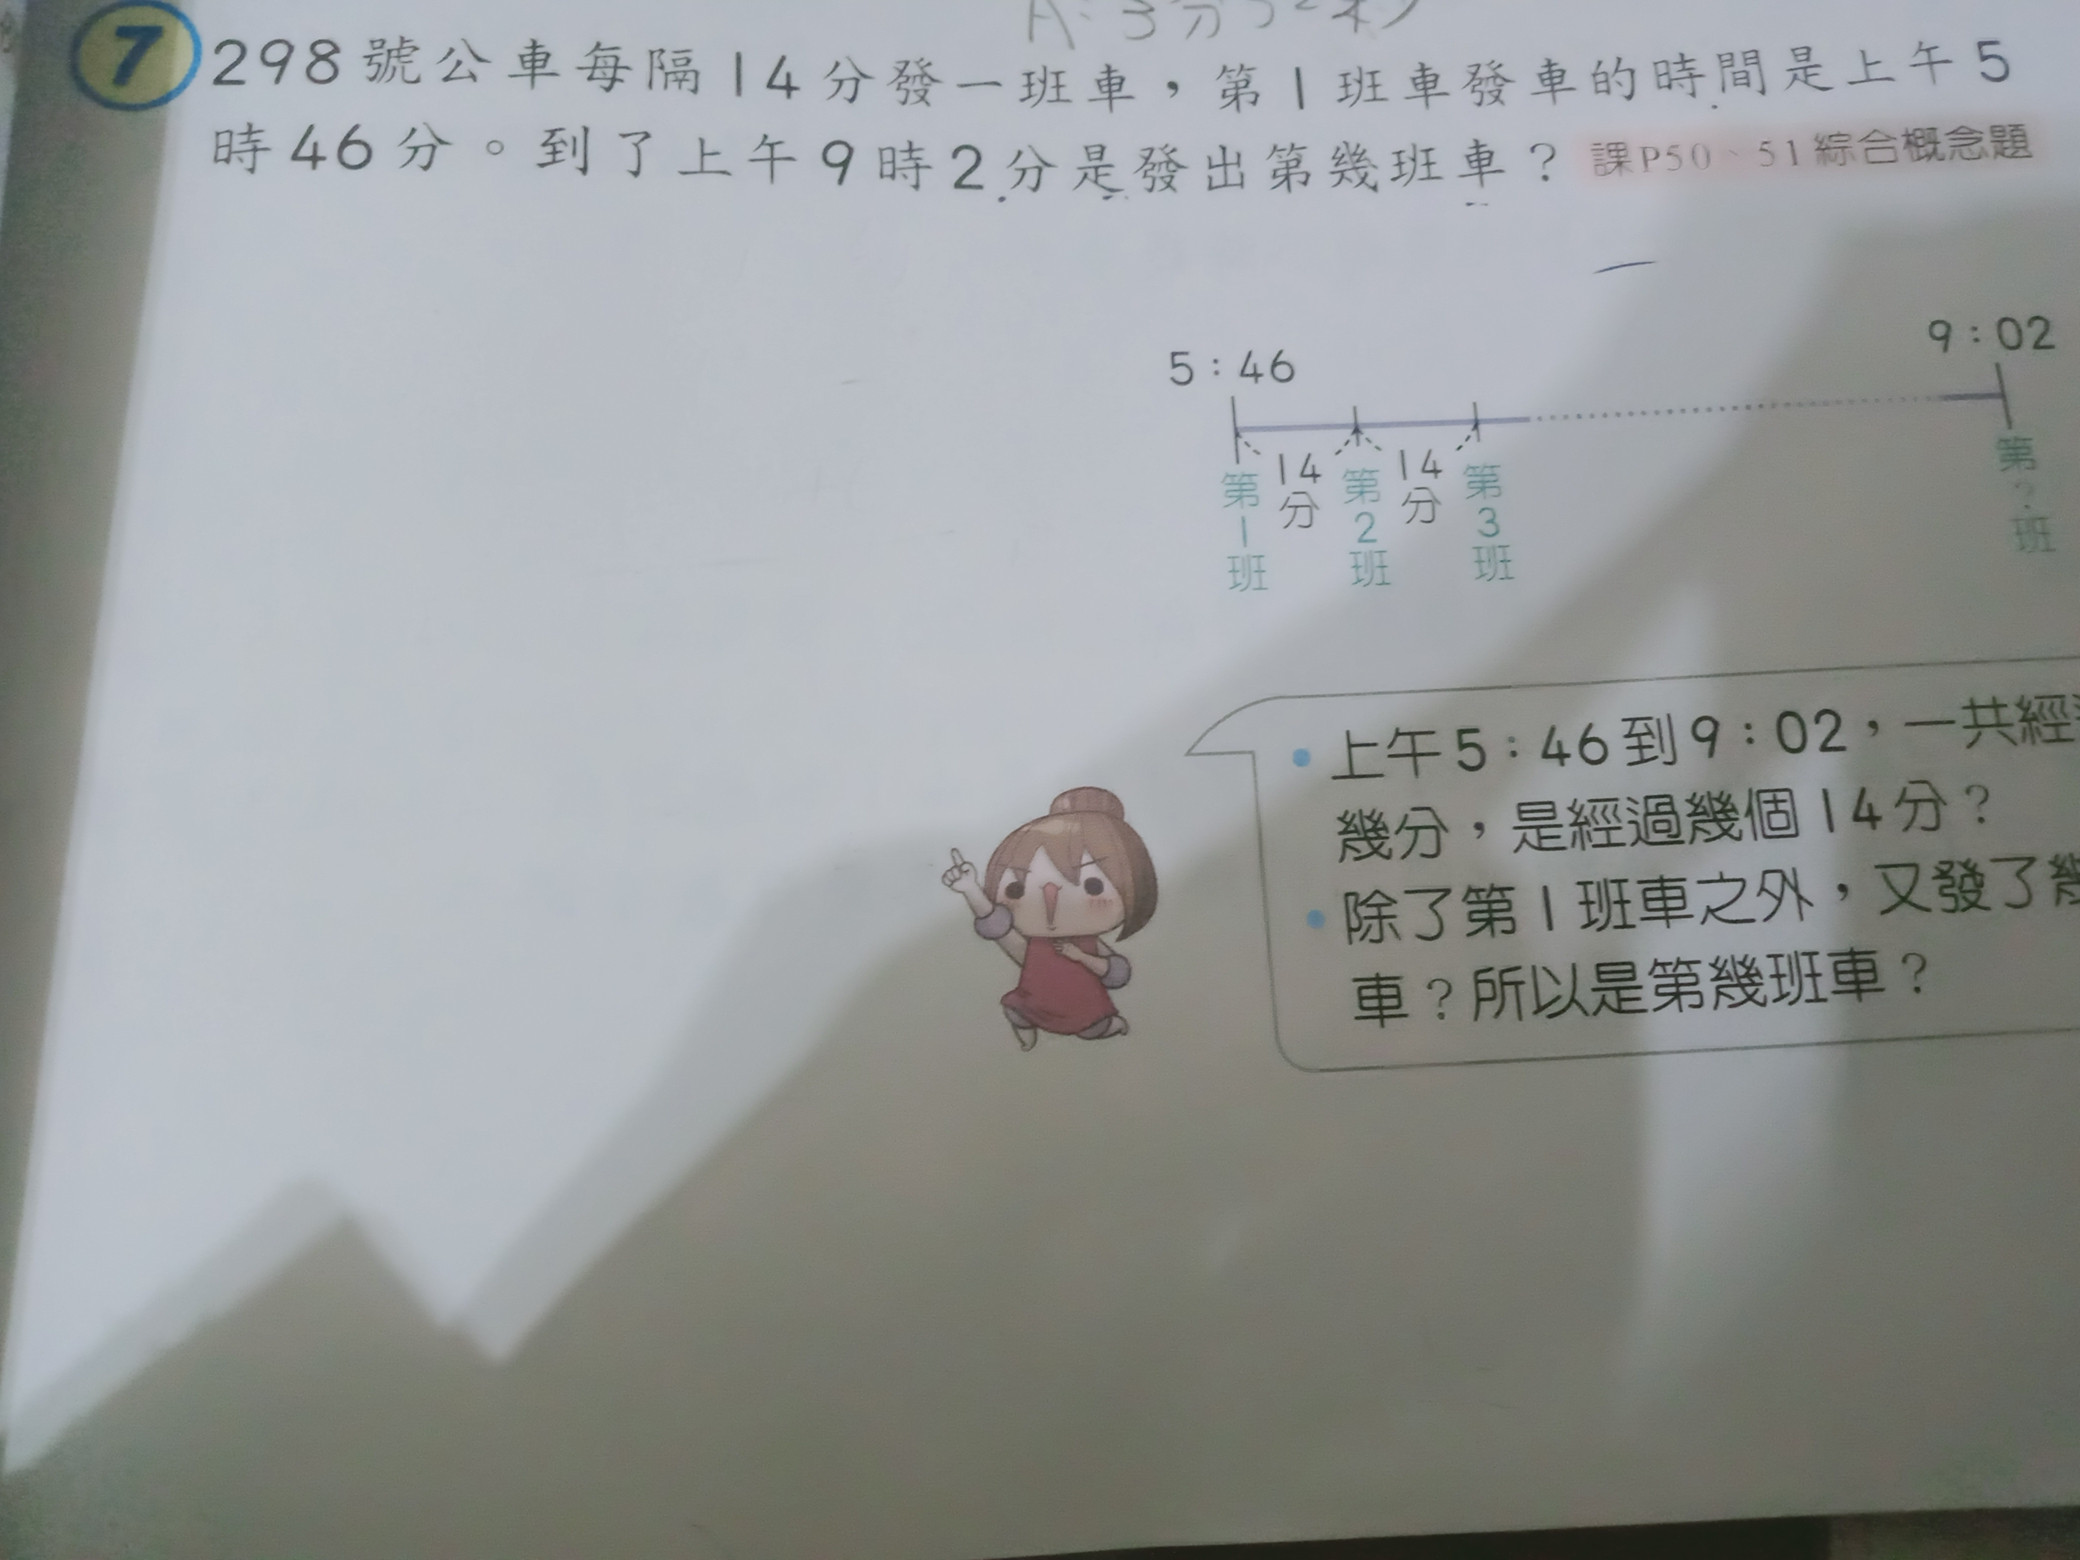 A:3分
7 298號公車每隔14分發一班車,第1班車發車的時間是上午5
時46分。到了上午9時2分是發出第幾班車? 課P50、51綜合概念題
5:46
9:02
14分 14分
第1班 第2班 第3班 第?班
•上午5:46到9:02,一共經
幾分,是經過幾個14分?
•除了第1班車之外,又發了幾
車?所以是第幾班車?